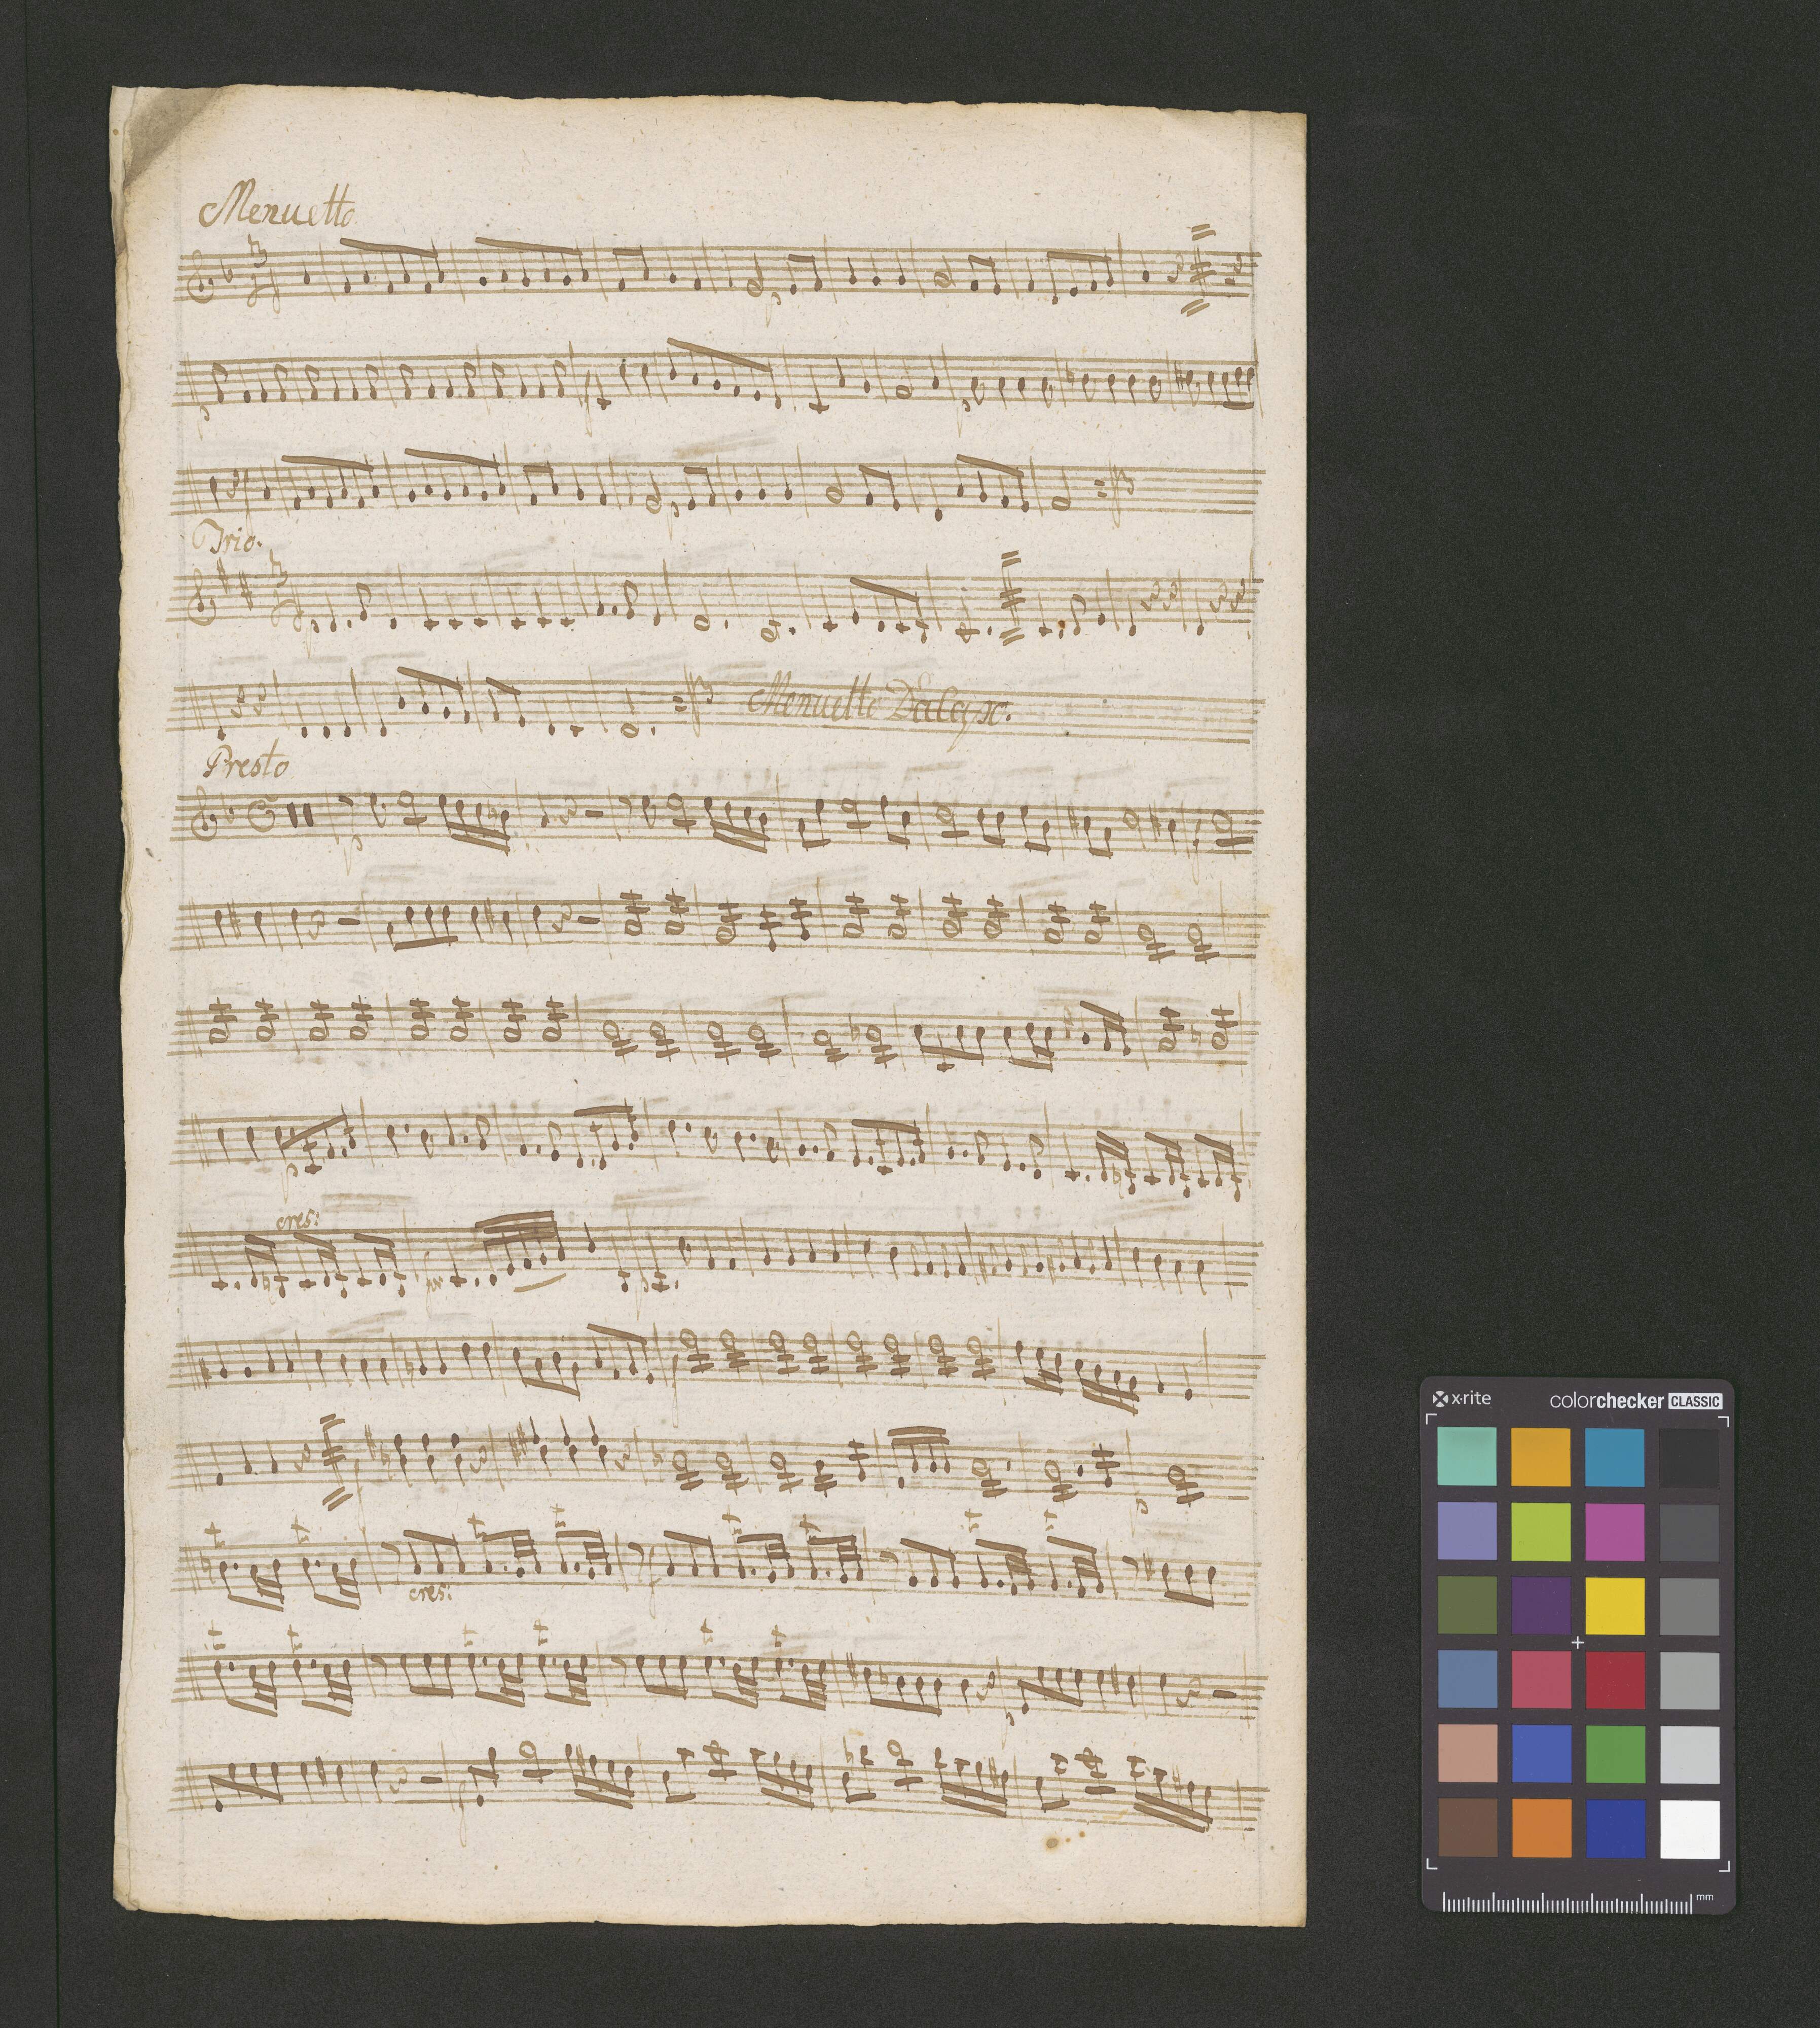 Menuetto
p
p f p
p
Trio.
p
Menuetto DaCapo.
Presto
p f
p
cres:
fz p
f
f p
cres: f
p
f
x·rite colorchecker CLASSIC
mm